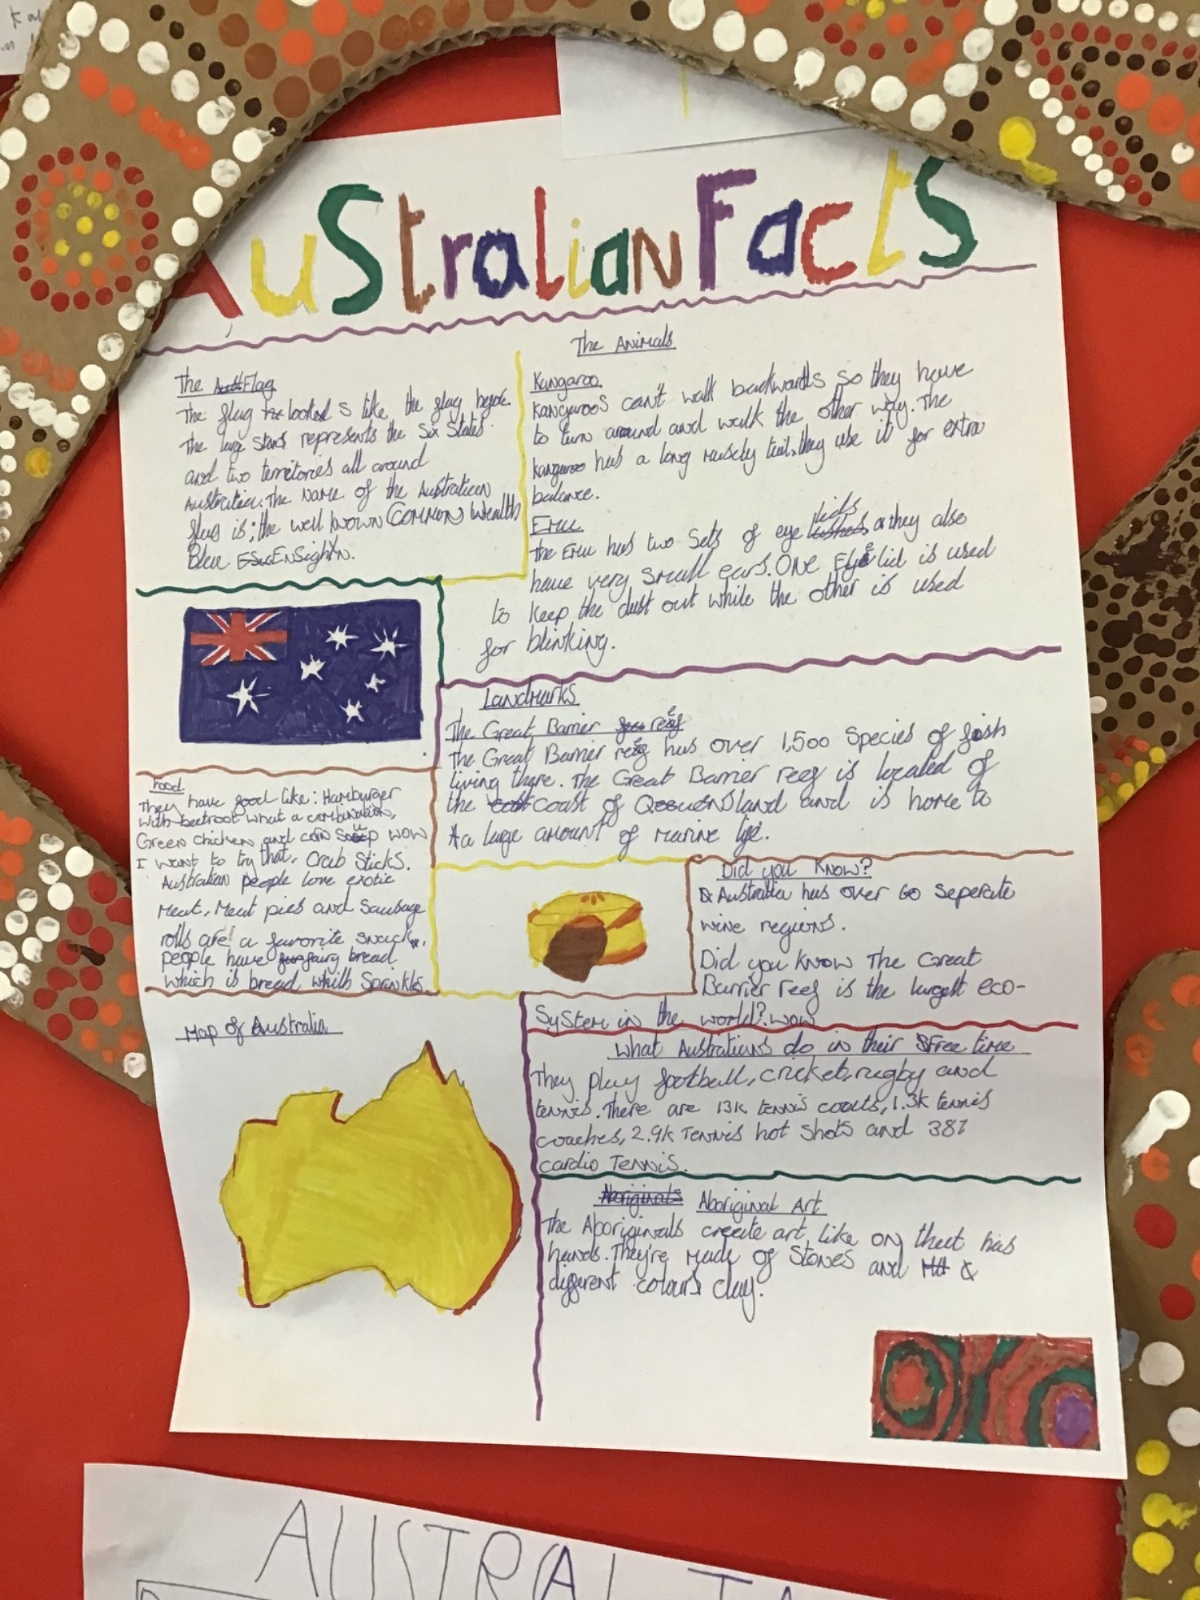 Australian Facts
The Flag
The flag looks like the flag before.
The large stars represents the Six States
and two territories all around
Australia. The Name of the Australian
flag is; the well known Common Wealth
Blue EnSighn.
The Animals
Kangaroo
Kangaroos can't walk backwards so they have
to turn around and walk the other way. The
kangaroo has a long muscly tail, they use it for extra
balance.
Emu
The Emu has two Sets of eye lids they also
have very small ears. One Eye lid is used
to keep the dust out while the other is used
for blinking.
Landmarks
The Great Barrier reef
The Great Barrier reef has over 1,500 Species of fish
living there. The Great Barrier reef is located of
the coast of Queensland and is home to
a large amount of marine life.
food
They have food like: Hamburger
with beetroot what a combination,
Green chicken and corn Soup wow
I want to try that, Crab Sticks.
Australian people love exotic
Meat, Meat pies and Sausage
rolls are a favorite snack,
people have fairy bread
which is bread whith Sprinkls.
Did you Know?
Australia has over 60 seperate
wine regions.
Did you Know The Great
Barrier Reef is the largest eco-
System in the world? wow
Map of Australia
What Australians do in their Free time
They play football, cricket, rugby and
tennis. There are 13k tennis coarts, 1.3k tennis
coaches, 2.9k Tennis hot shots and 387
cardio Tennis.
Aboriginals Aboriginal Art
The Aboriginals create art like on theat has
hands. They're Made of Stones and
different colours clay.
AUSTRALIA